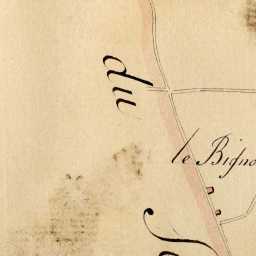 du
le Bigno